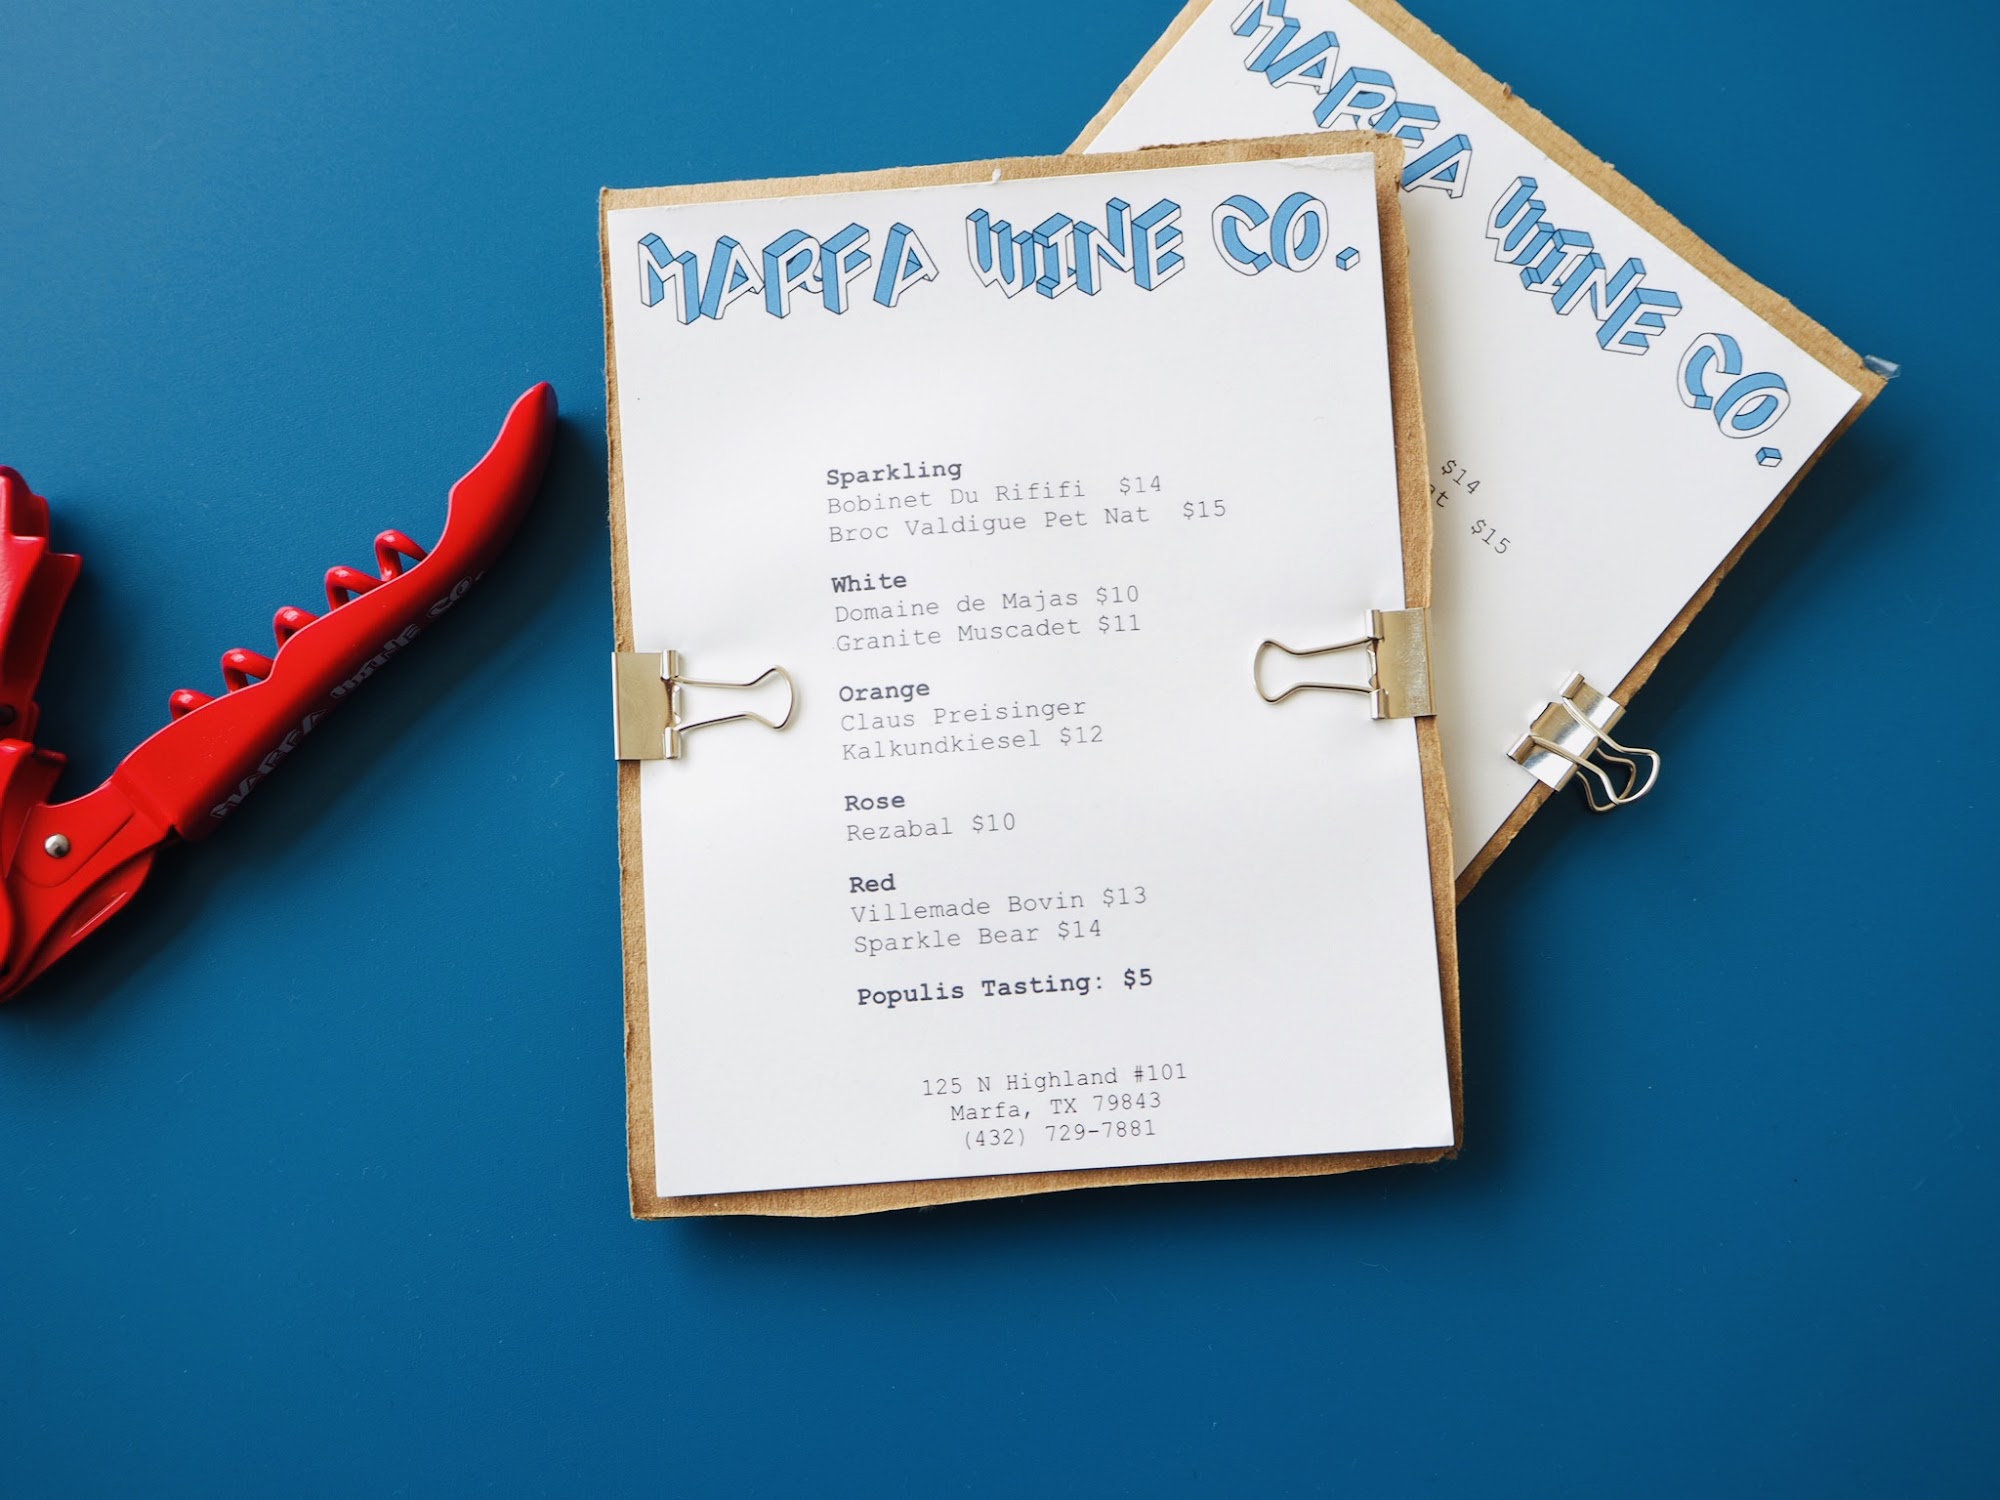 MARFA WINE CO.
Sparkling
Bobinet Du Rififi $14
Broc Valdigue Pet Nat $15
White
Domaine de Majas $10
Granite Muscadet $11
Orange
Claus Preisinger
Kalkundkiesel $12
Rose
Rezabal $10
Red
Villemade Bovin $13
Sparkle Bear $14
Populis Tasting: $5
125 N Highland #101
Marfa, TX 79843
(432) 729-7881
MARFA WINE CO.
$14
$15
MARFA WINE CO.